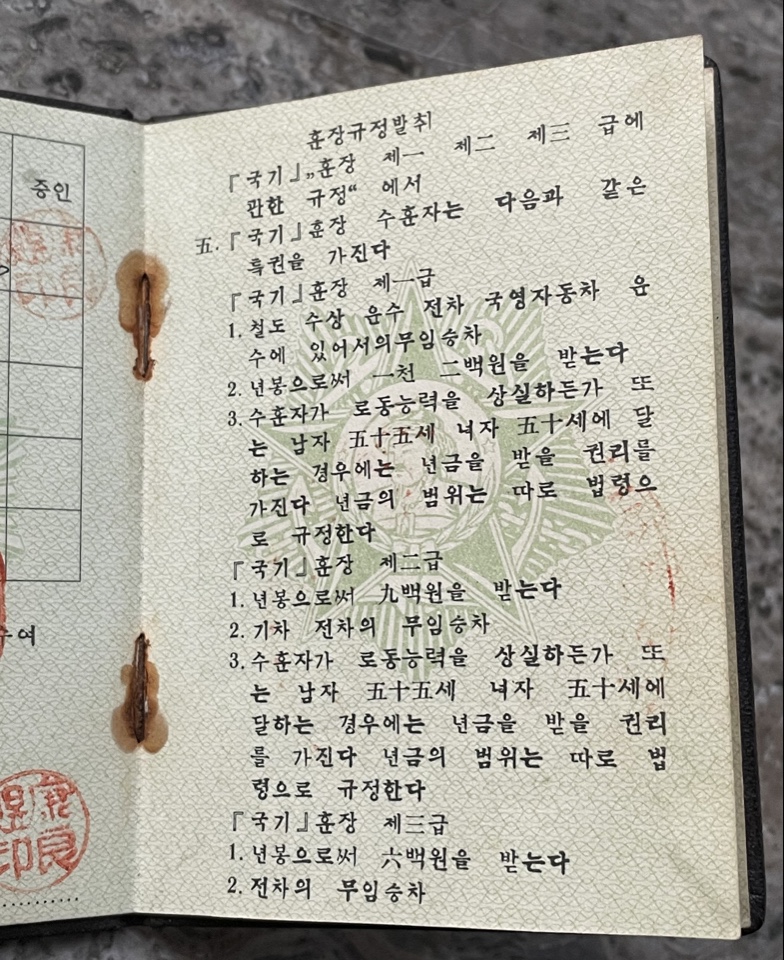 증인
수여
훈장규정발취
『국기』„훈장 제一 제二 제三 급에
관한 규정“ 에서
五.『국기』훈장 수훈자는 다음과 같은
특권을 가진다
『국기』훈장 제一급
1. 철도 수상 운수 전차 국영자동차 운
수에 있어서의무임승차
2. 년봉으로써 一천 二백원을 받는다
3. 수훈자가 로동능력을 상실하든가 또
는 남자 五十五세 녀자 五十세에 달
하는 경우에는 년금을 받을 권리를
가진다 년금의 범위는 따로 법령으
로 규정한다
『국기』훈장 제二급
1. 년봉으로써 九백원을 받는다
2. 기차 전차의 무임승차
3. 수훈자가 로동능력을 상실하든가 또
는 남자 五十五세 녀자 五十세에
달하는 경우에는 년금을 받을 권리
를 가진다 년금의 범위는 따로 법
령으로 규정한다
『국기』훈장 제三급
1. 년봉으로써 六백원을 받는다
2. 전차의 무임승차